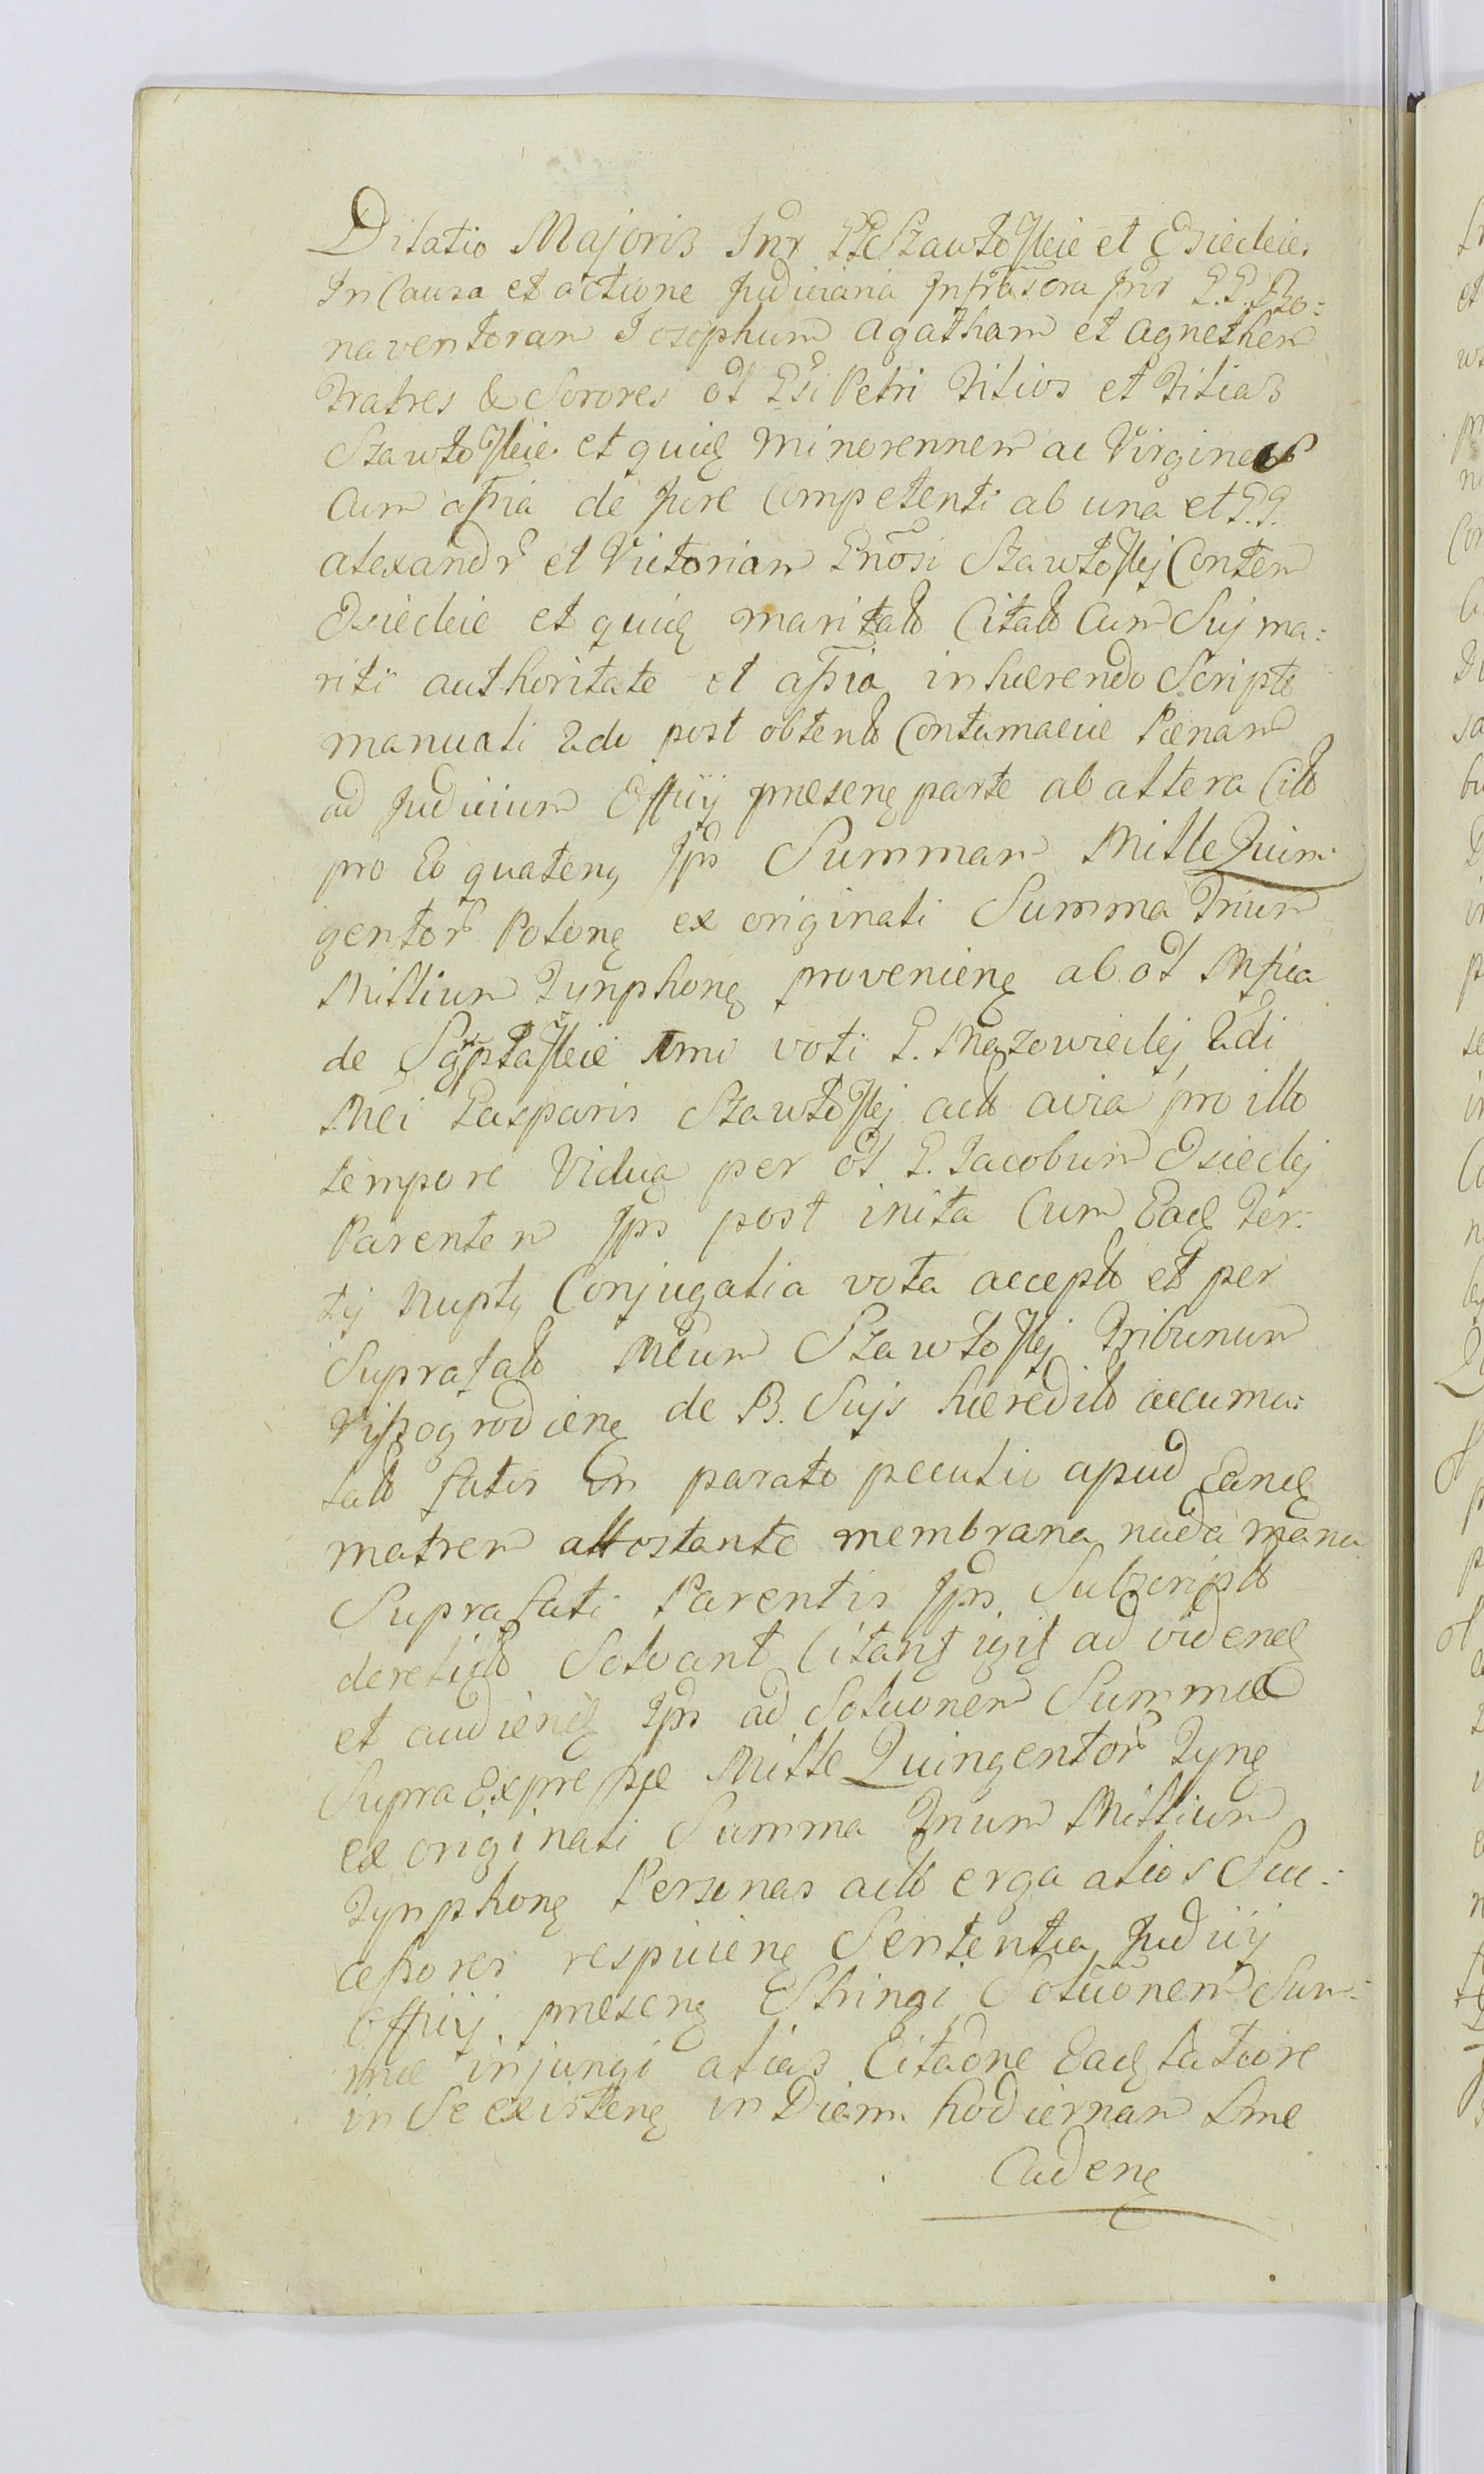 Dilatio Majoris Inr PP Szawłoskie et Osieckie.
In Causa et actione Judiciaria Infrascra Inr P.P. Bo:
naventuram Josephum agatham et agnethem
Fratres & Sorores ol Gsi Petri Filios et Filias
Szawłoskie et quid minorennem ac Virgines
Cum assia de Jure Competenti ab una et P.P.
alexandr et Victoriam Gnosi Szawłoskij Contem
Osieckie et quid marital Citato Cum Sui ma:
riti authoritate et assia inhærendo Scripto
manuali ado post obtent Contumaciæ Pænam
ad Judicium Officij præsens parte ab altera Cit
pro Eo quatenus Ips Summam Mille Quin-
gentor Polone ex originali Summa Trium
Millium Tynphone proveniens ab ol Mfica
de voti P. Mazowieckij
Mei Gasparis Szawłoskij act avia pro illo
tempore Vidua per ol P. Jacobum Osieckij
Parentem Ips post inita Cum Ead Ter:
tij Nuptij Conjugalia vota accept et per
Suprafat Meum Szawłoskij Tribunum
Vissogrodiens de B. Suis hæredit accumu:
lat fatis in parato peculio apud Eand
matrem attestante membrana nuda manu
Suprafati Parentis Ips Subscript
derelict Solvant Citans igit ad vidend
et audiend Ips ad Soluonem Summæ
Supra Expressæ Mille Quingentor Tyne
ex originali Summa Trium Millium
Tynphone Personas act erga alios Suc:
cessores respiciens Sententia Judicij
Officij præsens Stringi Soluonem Sum:
mæ injungi alias Citaone Ead latiore
in Se existens in Diem hodiernam Lme
Cadens